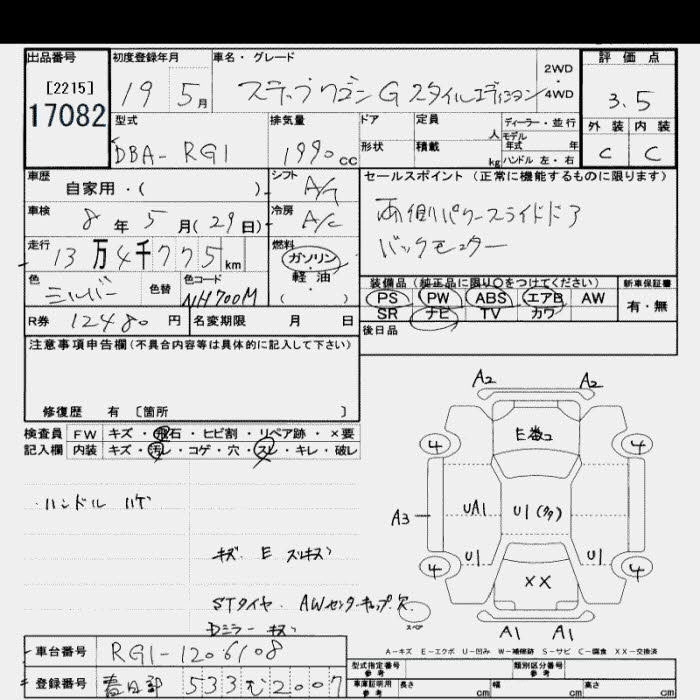 出品番号 初度登録年月 車名・グレード 評価点
[2215] 19 5月 ステップワゴン G スタイルエディション 2WD・4WD 3.5
17082 型式 排気量 ドア 定員 人 ディーラー・並行 外装 内装
DBA-RG1 1990cc 形状 積載 kg モデル年式 年 ハンドル 左・右 C C
車歴 自家用・( ) シフト A/T セールスポイント(正常に機能するものに限ります)
車検 8年5月(29日) 冷房 A/C 両側パワースライドドア
走行 13万4千775km 燃料 ガソリン・軽油・( ) バックモニター
色 シルバー 色替 色コード NH700M 装備品(純正品に限り○をつけてください) 新車保証書
PS PW ABS エアB AW 有・無
R券 12480円 名変期限 月 日 SR ナビ TV カワ
注意事項申告欄(不具合内容等は具体的に記入して下さい) 後日品
修復歴 有 [箇所 ]
検査員 FW キズ・飛石・ヒビ割・リペア跡・×要
記入欄 内装 キズ・汚レ・コゲ・穴・スレ・キレ・破レ
A2 A2
E数コ
4 4
・ハンドル ハゲ
A3 UA1 U1(多)
U1 U1
キズ E スリキズ
4 XX 4
STタイヤ・AWセンターキャップ欠
スペア
Dミラーキズ
A1 A1
A-キズ E-エクボ U-凹み W-補修跡 S-サビ C-腐食 XX-交換済
車台番号 RG1-1206108 型式指定番号 参考 類別区分番号 参考
登録番号 春日部 533 む 2007 車庫証明用 参考 長さ cm 幅 cm 高さ cm